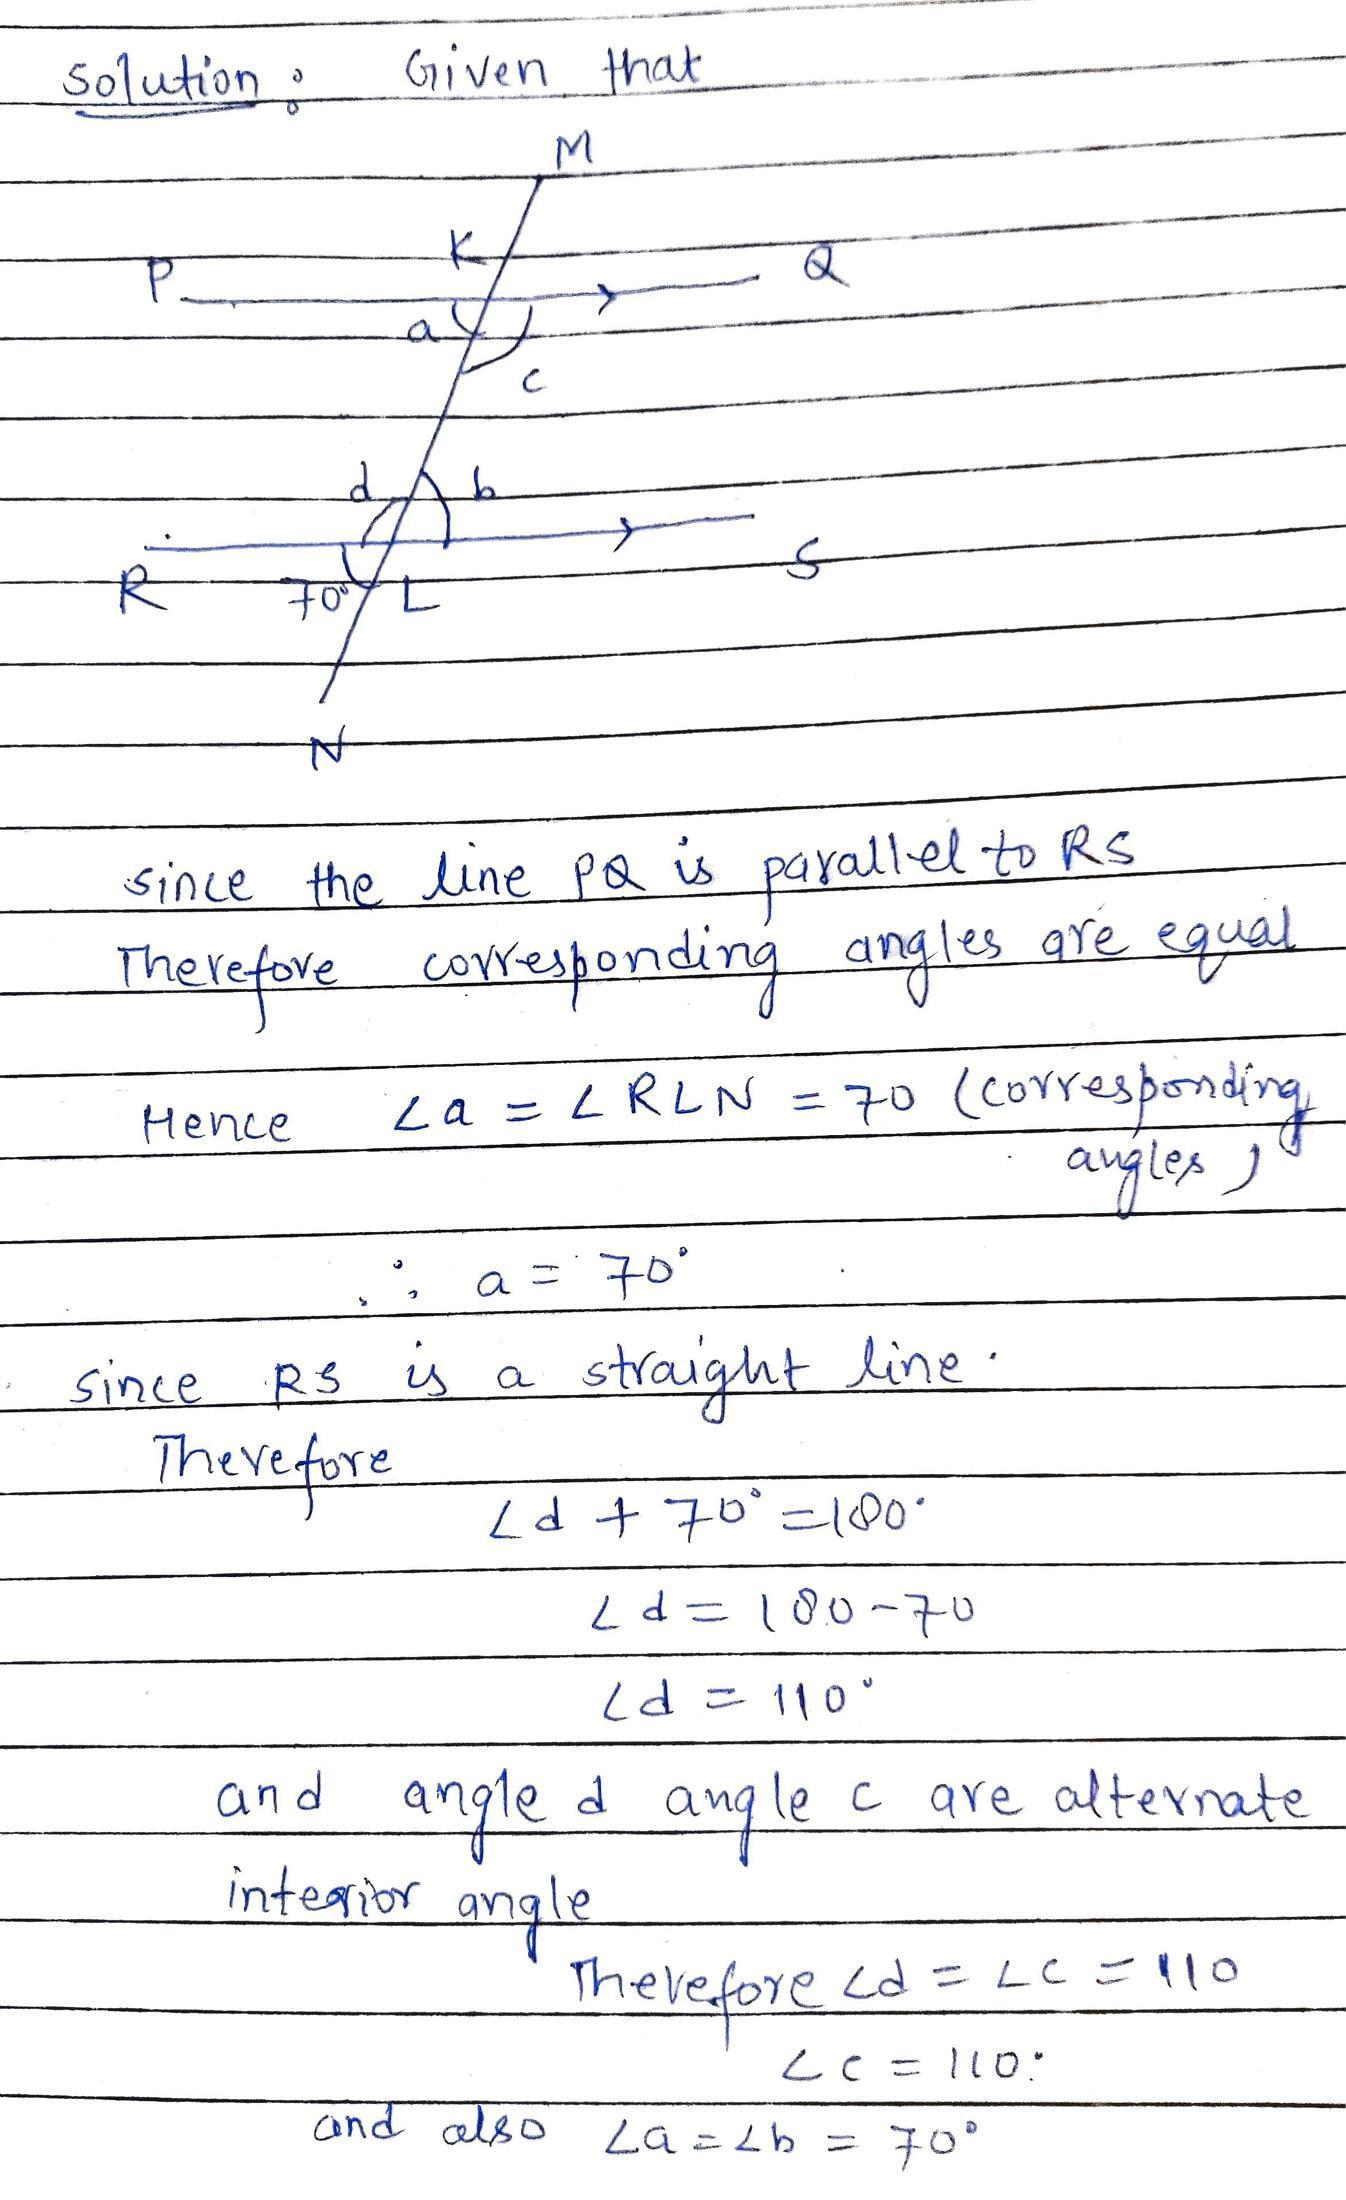 Solution: Given that
M
K
P
Q
a
c
d
b
R
70°
L
S
N
since the line PQ is parallel to RS
Therefore corresponding angles are equal
Hence ∠a = ∠RLN = 70 (corresponding
angles)
∴ a = 70°
since RS is a straight line.
Therefore
∠d + 70° = 180°
∠d = 180 - 70
∠d = 110°
and angle d angle c are alternate
interior angle
Therefore ∠d = ∠c = 110
∠c = 110°
and also ∠a = ∠b = 70°